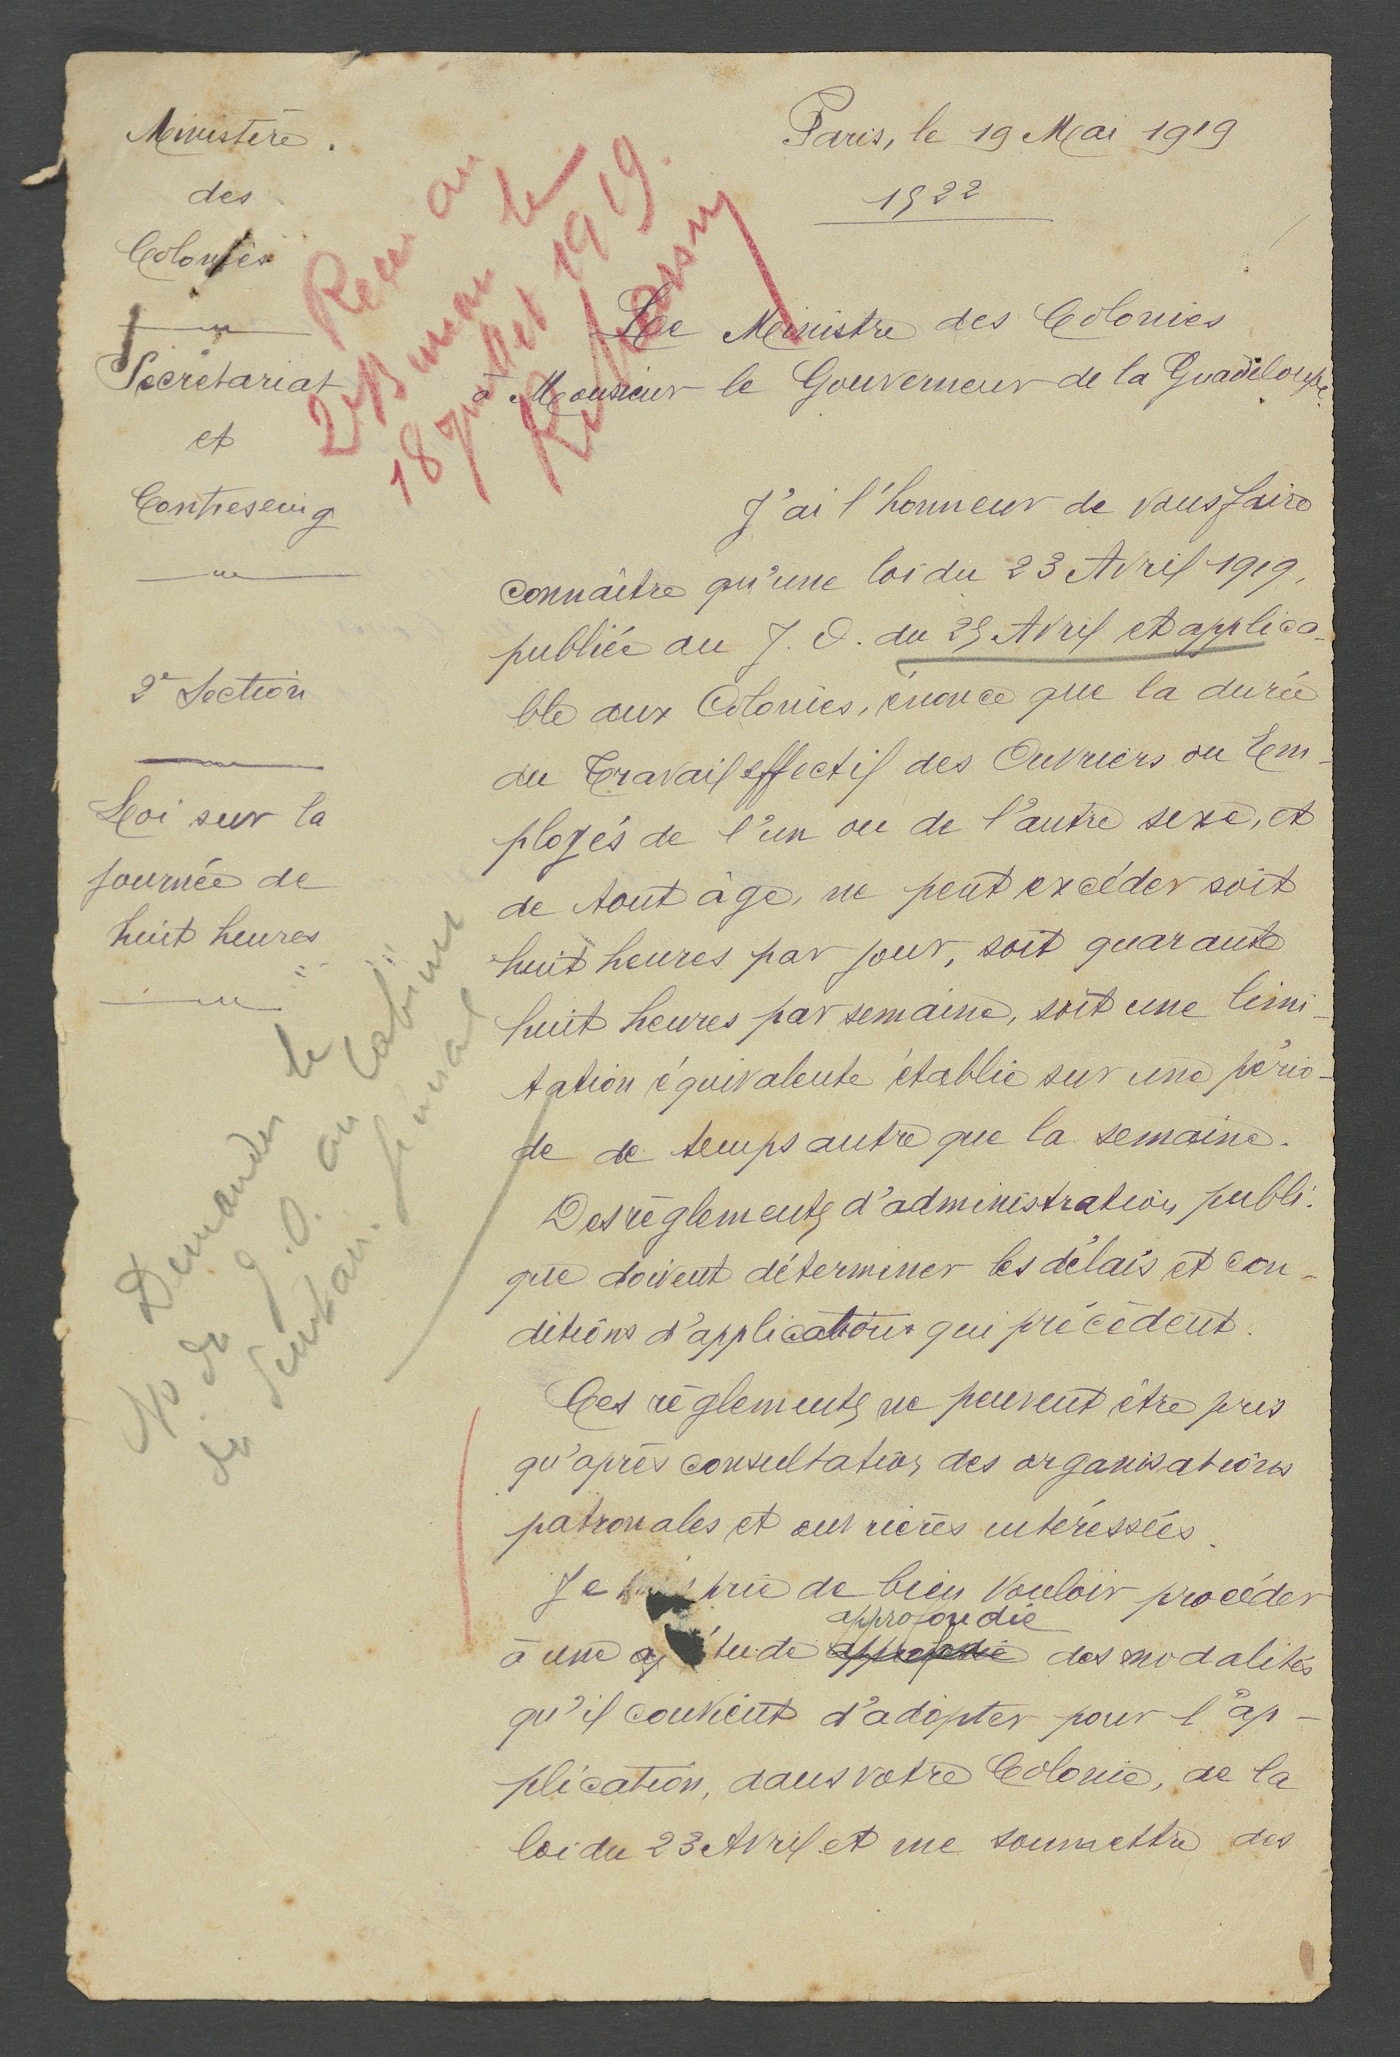 Ministère.
des
Colonies
Secrétariat
et
Contreseing
2e Section
Loi sur la
journée de
huit heures
Paris, le 19 Mai 1919
1922
Reçu au
2e Bureau le
18 juillet 1919.
Le Ministre des Colonies
à Monsieur le Gouverneur de la Guadeloupe.
J'ai l'honneur de vous faire
connaître qu'une loi du 23 Avril 1919,
publiée au J. O. du 25 Avril et applica-
ble aux Colonies, énonce que la durée
du Travail effectif des Ouvriers ou Em-
ployés de l'un ou de l'autre sexe, et
de tout âge, ne peut excéder soit
huit heures par jour, soit quarante
huit heures par semaine, soit une limi-
tation équivalente établie sur une pério-
de de temps autre que la semaine.
Des règlements d'administration publi-
que doivent déterminer les délais et con-
ditions d'application qui précèdent.
Ces règlements ne peuvent être pris
qu'après consultation des organisations
patronales et ouvrières intéressées.
Je prie de bien vouloir procéder
approfondie
à une étude des modalités
qu'il convient d'adopter pour l'ap-
plication, dans votre Colonie, de la
loi du 23 Avril et me soumettre des
Demander le
No du J.O. au Cabinet
du Secrétariat. Général